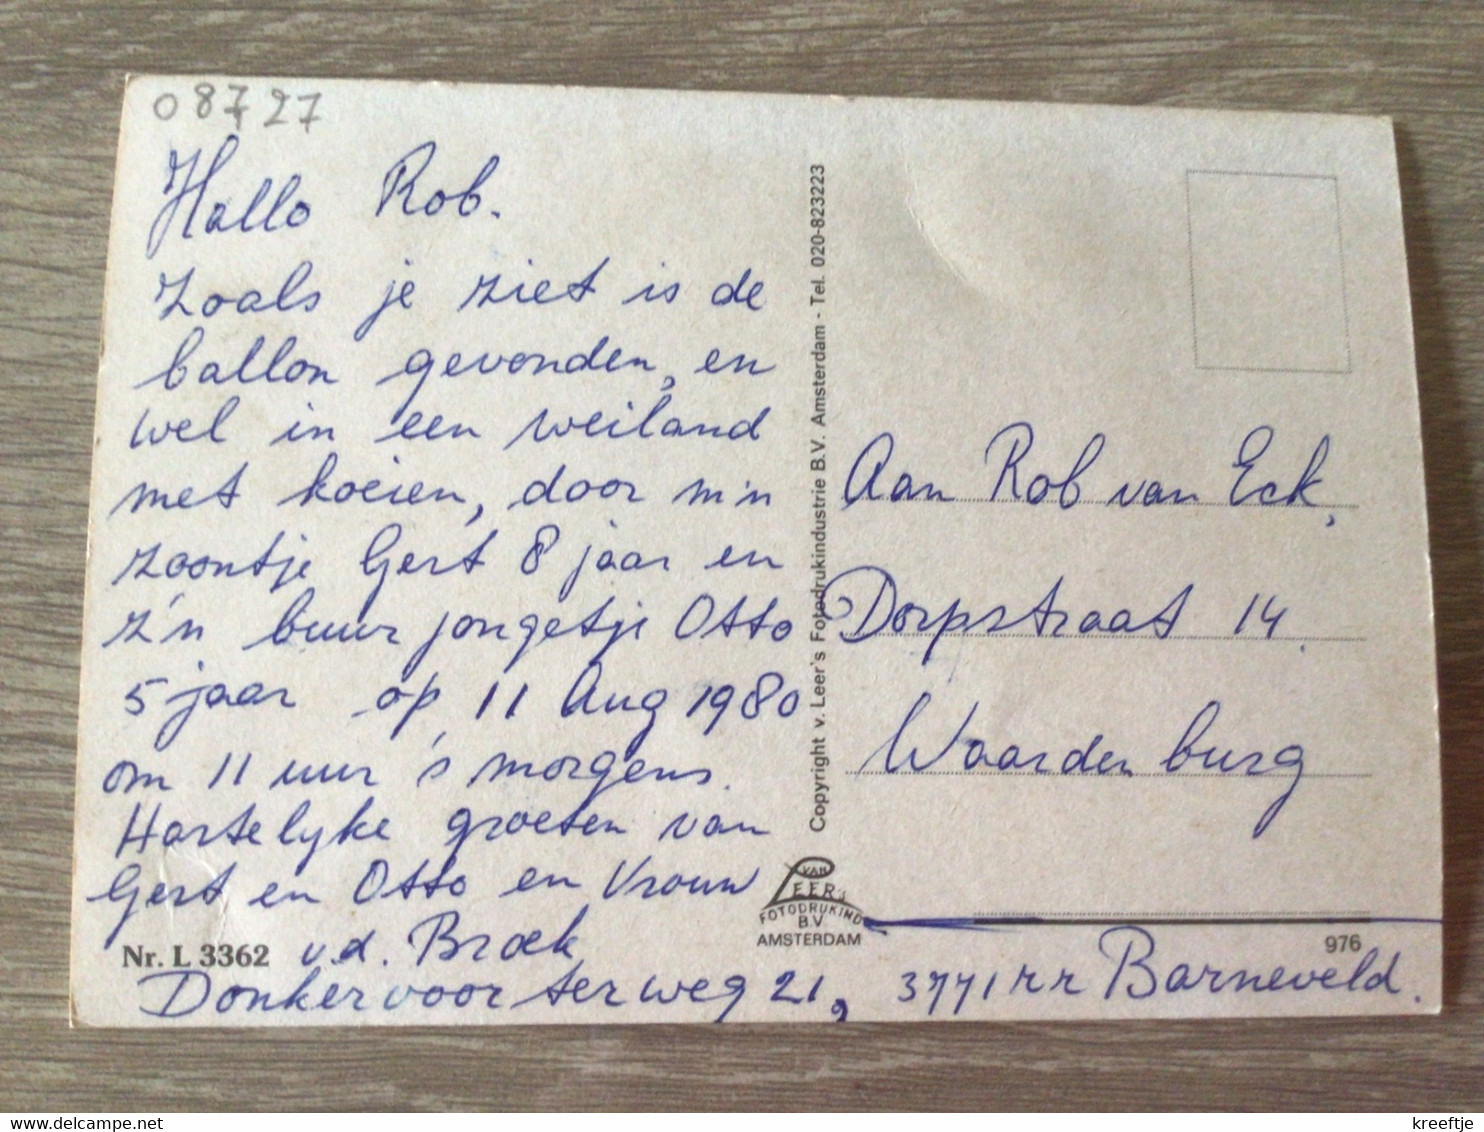 08727
Hallo Rob.
Zoals je ziet is de
ballon gevonden, en
wel in een weiland
met koeien, door m'n
zoontje Gert 8 jaar en
z'n buur jongetje Otto
5 jaar op 11 Aug 1980
om 11 uur 's morgens.
Hartelyke groeten van
Gert en Otto en Vrouw
v.d. Broek
Donkervoorterweg 21, 3771 RR Barneveld.
Nr. L 3362
Copyright v. Leer's Fotodrukindustrie B.V. Amsterdam - Tel. 020-823223
VAN
LEER'S
FOTODRUKIND
B.V.
AMSTERDAM
Aan Rob van Eck,
Dorpstraat 14.
Waardenburg
976
kreeftje